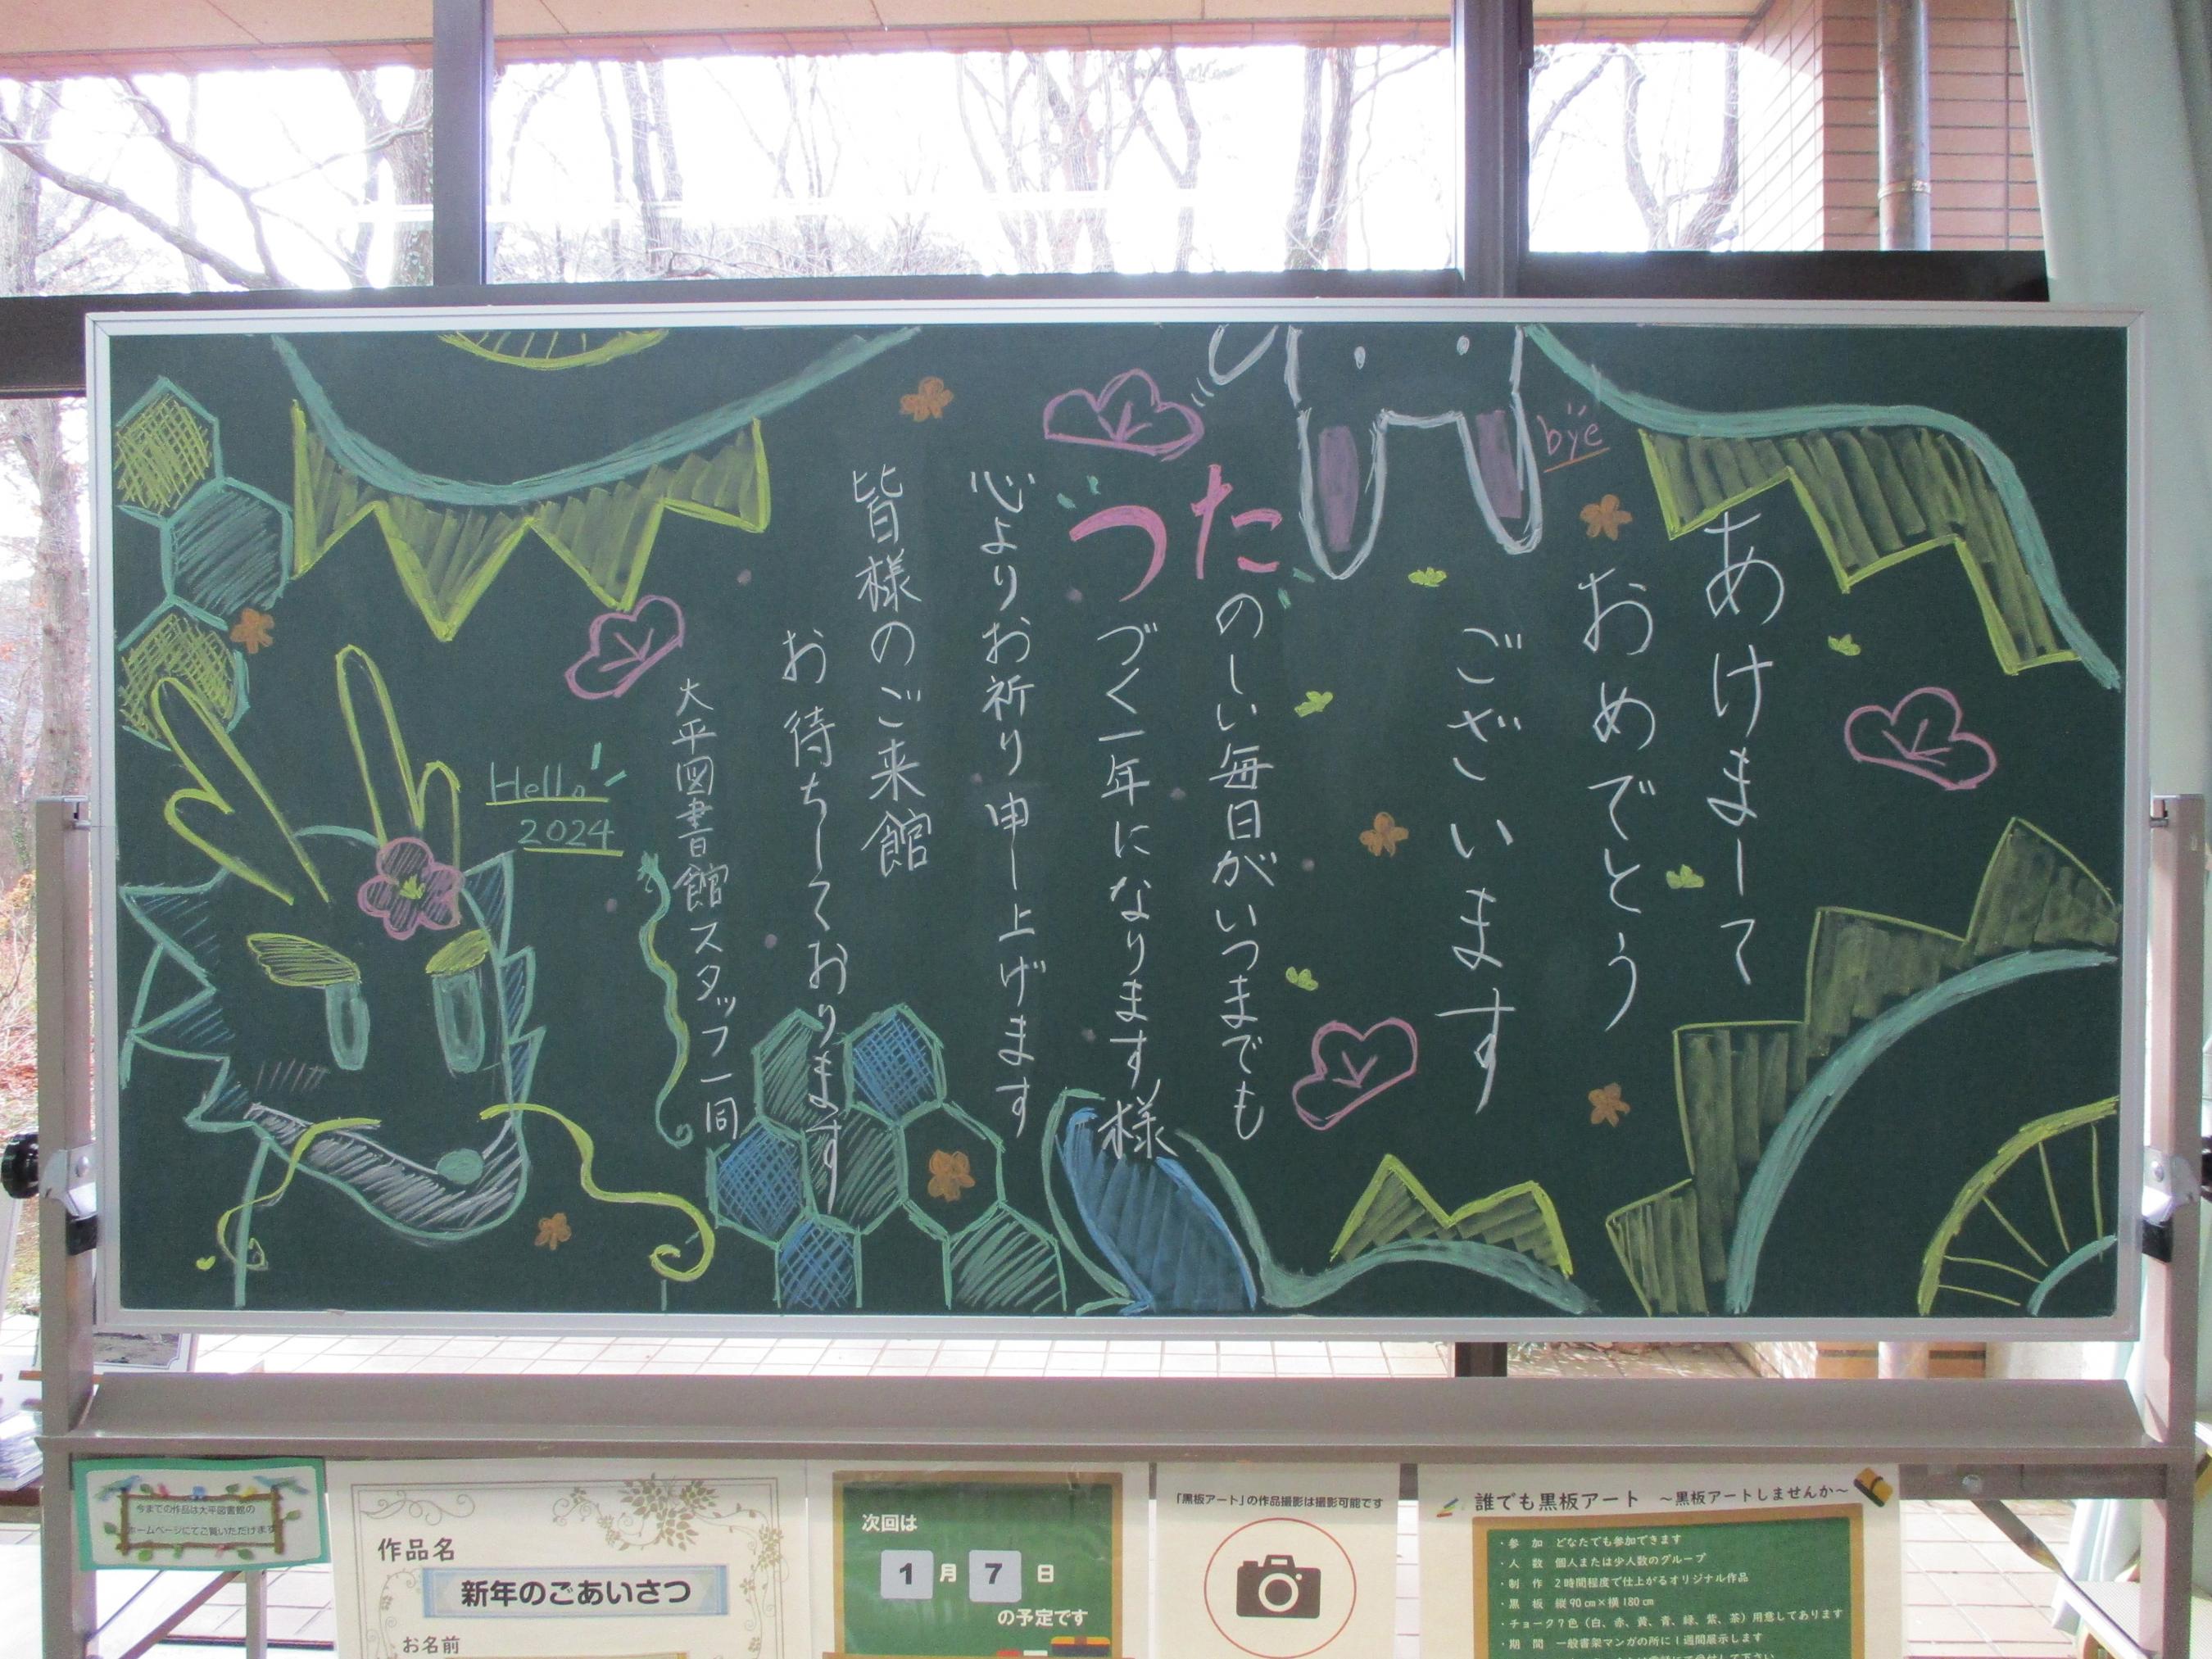 あけまして
おめでとう
ございます
bye
たのしい毎日がいつまでも
つづく一年になります様
心よりお祈り申し上げます
皆様のご来館
お待ちしております
大平図書館スタッフ一同
Hello
2024
今までの作品は大平図書館の
ホームページにてご覧いただけます
作品名
新年のごあいさつ
お名前
次回は
1月7日
の予定です
「黒板アート」の作品撮影は撮影可能です
誰でも黒板アート ～黒板アートしませんか～
・参 加 どなたでも参加できます
・人 数 個人または少人数のグループ
・制 作 2時間程度で仕上がるオリジナル作品
・黒 板 縦90cm×横180cm
・チョーク7色（白、赤、黄、青、緑、紫、茶）用意してあります
・期 間 一般書架マンガの所に1週間展示します